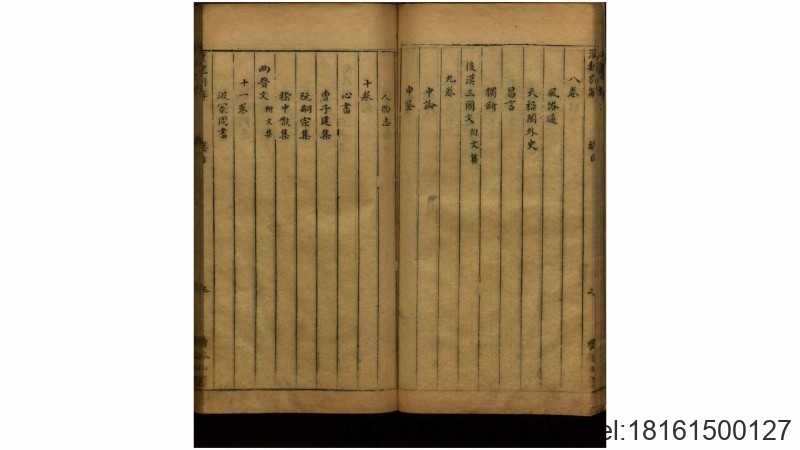 八卷
風俗通
天祿閣外史
昌言
獨斷
後漢三國文附文集
九卷
中論
申鑒
人物志
十卷
心書
曹子建集
阮嗣宗集
嵇中散集
兩晉文附文集
十一卷
汲冢周書
el:18161500127